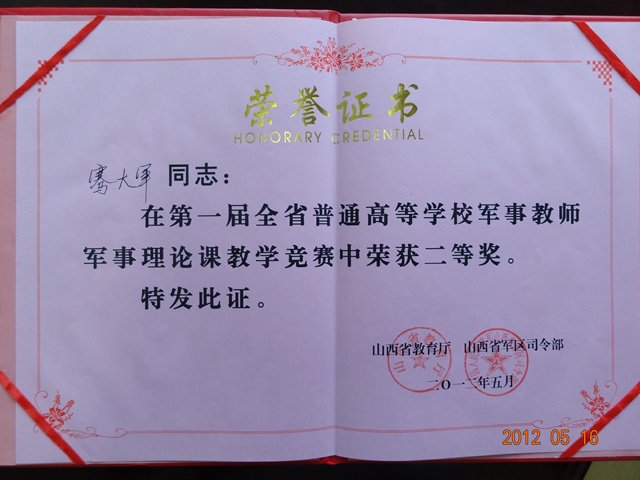 荣誉证书
HONORARY CREDENTIAL
骞大军 同志：
在第一届全省普通高等学校军事教师
军事理论课教学竞赛中荣获二等奖。
特发此证。
山西省教育厅 山西省军区司令部
二〇一二年五月
2012 05 16